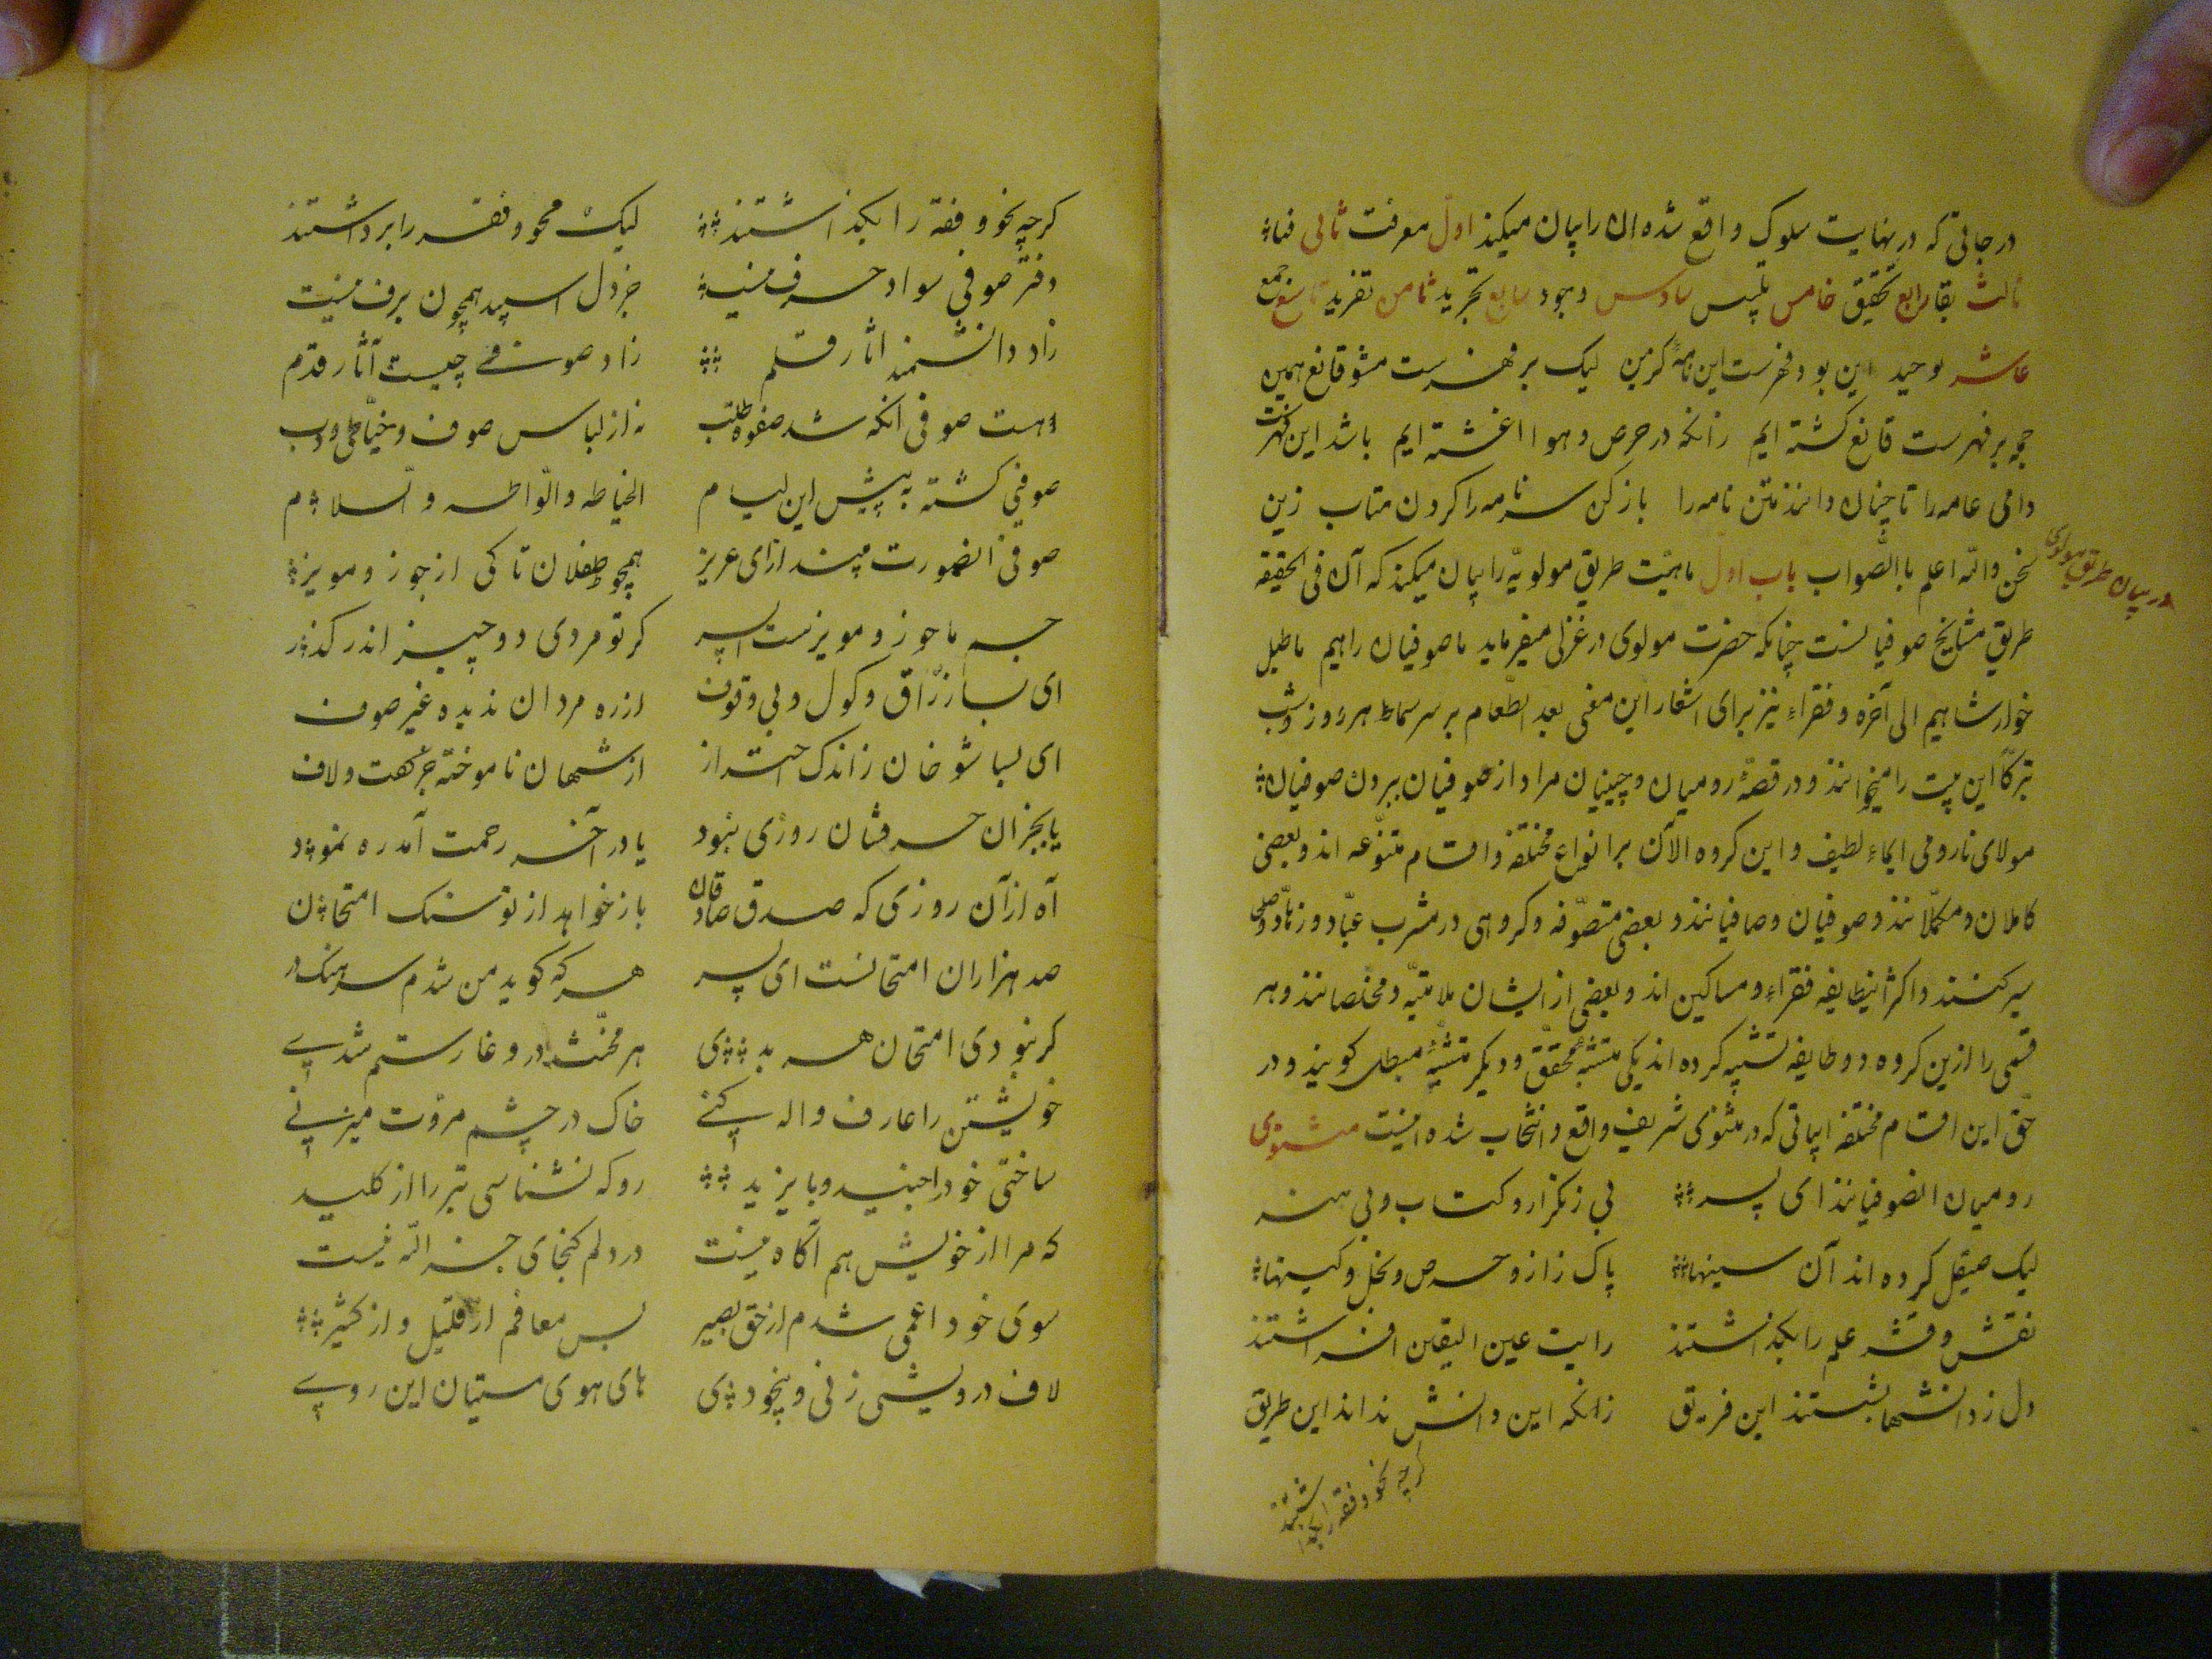 درجاتی که در نهایت سلوک واقع شده ان را بیان میکند اول معرفت ثانی فنا
ثالث بقا رابع تحقیق خامس تلبیس سادس وجود سابع تجرید ثامن تفرید تاسع جمع
عاشر توحید این بود فهرست این نامه گزین لیک بر فهرست مشو قانع همین
چو بر فهرست قانع گشته ایم زانکه در حرص و هوا اغشته ایم باشد این فهرست
دامی عامه را تا چنان دانند متن نامه را باز کن سرنامه را گردن متاب زین
سخن والله اعلم باالصواب باب اول ماهیت طریق مولویه را بیان میکند که آن فی الحقیقه
در بیان طریق مولوی
طریق مشایخ صوفیانست چنانکه حضرت مولوی در غزلی میفرماید ما صوفیان راهیم ما طبل
خوار شاهیم الی آخره و فقراء نیز برای اشعار این معنی بعد الطعام بر سر سماط هر روز و شب
تبرکا این بیت را میخوانند و در قصهٔ رومیان و چینیان مراد از صوفیان بردن صوفیان
مولای ما رومی ایماء لطیف و این گروه الآن بر انواع مختلفه و اقسام متنوعه اند و بعضی
کاملان و مکملانند و صوفیان و صافیانند و بعضی متصوفه و گروهی در مشرب عباد و زهاد
سیر کنند و اکثر اینطایفه فقراء و مساکین اند و بعضی از ایشان ملامتیه و مخلصانند و هر
قسمی را ازین گروه دو طایفه تشبیه کرده اند یکی متشبه محقق و دیگر متشبه مبطل گویند و در
حق این اقسام مختلفه ابیاتی که در مثنوی شریف واقع و انتخاب شده اینست مثنوی
رومیان انصوفیانند ای پسر بی ز تکرار و کتاب و بی هنر
لیک صیقل کرده اند آن سینها پاک ز از و حرص و بخل و کینها
نقش و قشر علم را بگذاشتند رایت عین الیقین افراشتند
دل ز دانشها بشستند این فریق زانکه این دانش نداند این طریق
گرچه نحو و فقه را بگذاشتند
کرچه نحو و فقه را بگذاشتند لیک محو و فقر را برداشتند
دفتر صوفی سواد حرف نیست جز دل اسپید همچون برف نیست
زاد دانشمند اثار قلم زاد صوفی چیست آثار قدم
هست صوفی انکه شد صفوه طلب نه از لباس صوف و خیاطی و دب
صوفی گشته به پیش این لیام الخیاطه و اللواطه و السلام
صوفی انصورت مپندار ای عزیز همچو طفلان تا کی از جوز و مویز
جسم ما جوز و مویزست ای پسر کر تو مردی دو چیز اندر گذر
ای بسا زراق و کول و بی وقوف از ره مردان ندیده غیر صوف
ای بسا شوخان ز اندک احتراز از شهان ناموخته جز گفت و لاف
یا بجز ان حرفشان روزی نبود یا در آخر رحمت آمد ره نمود
آه از آن روزی که صدق صادقان باز خواهد از تو سنک امتحان
صد هزاران امتحانست ای پسر هر که کوید من شدم سرهنک در
کر نبودی امتحان هر بدی هر مخنث در وغا رستم شدی
خویشتن را عارف و واله کنی خاک در چشم مروت میزنی
ساختی خود را جنید و بایزید رو که نشناسی تبر را از کلید
که مرا از خویش هم آگاه نیست در دلم گنجای جز الله نیست
سوی خود اعمی شدم از حق بصیر پس معافم از قلیل و از کثیر
لاف درویشی زنی و بیخودی های هوی مستیان ایزدی